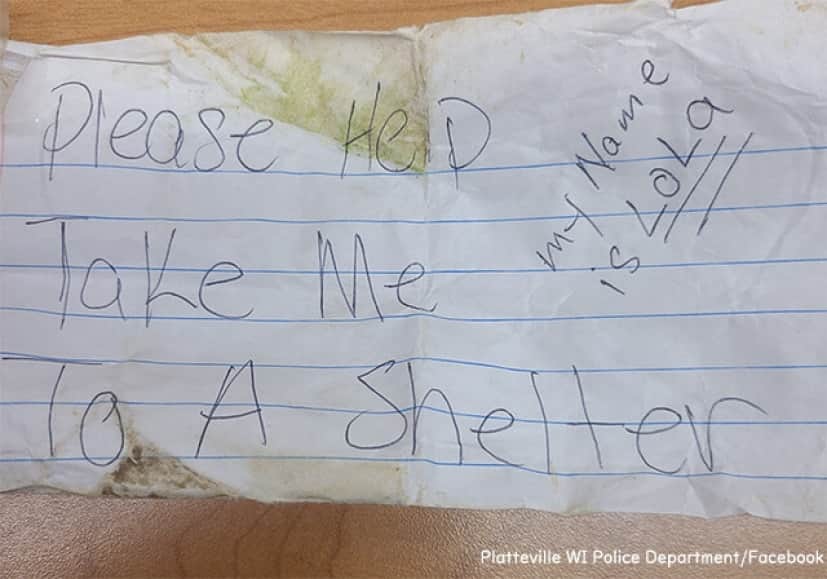 Please HelP
Take Me
To A Shelter
my Name
is LoLa
Platteville WI Police Department/Facebook